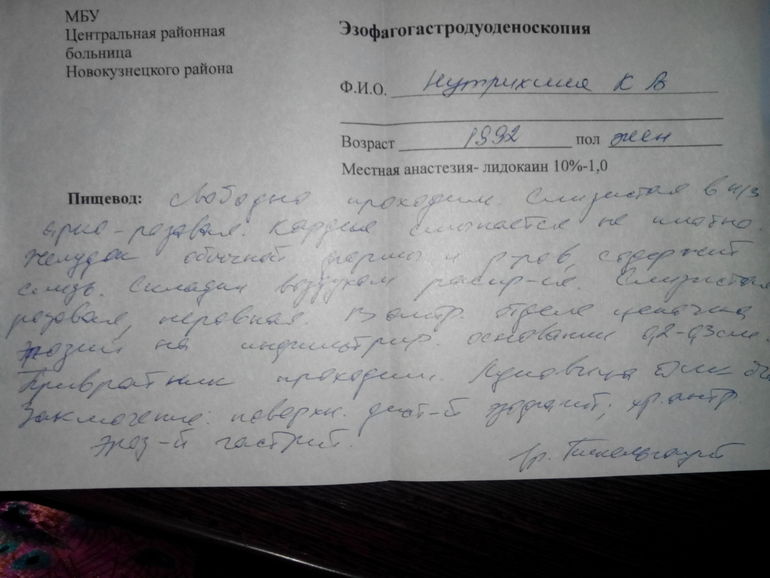 МБУ
Центральная районная
больница
Новокузнецкого района
Эзофагогастродуоденоскопия
Ф.И.О. К В
Возраст 1992 пол жен
Местная анастезия- лидокаин 10%-1,0
Пищевод: Свободно проходим. Слизистая в н/3
ярко-розовая. Кардия смыкается не плотно.
Желудок обычной формы и р-ров, содержит
слизь. Складки воздухом распр-ся. Слизистая
розовая, неровная. В антр. отделе цепочка
эрозий на инфильтрир. основании 0,2-0,3см.
Привратник проходим. Луковица ДПК
Заключение: поверхн. дист-й эзофагит; хр. антр.
эроз-й гастрит.
Вр.